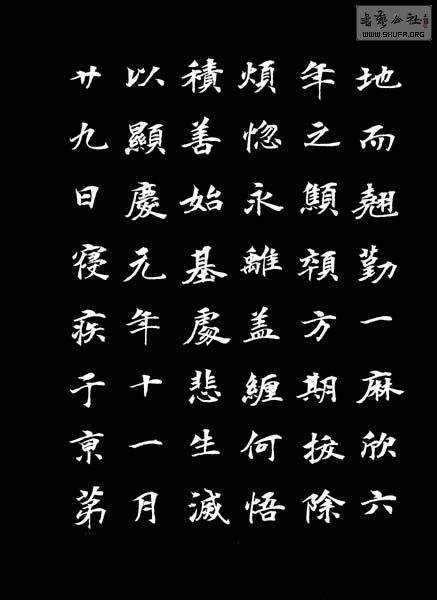 地而翹勤一麻欣六
年之顦顇方期拔除
煩惚永離盖纏何悟
積善始基處悲生滅
以顯慶元年十一月
廿九日寑疾于京第
書艺公社
WWW.SHUFA.ORG